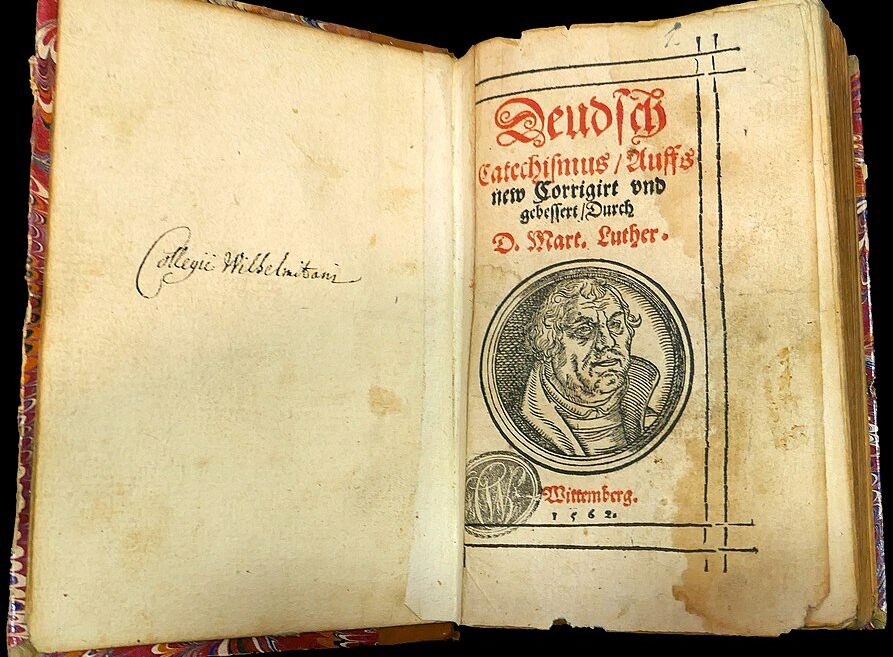 Collegii Wilhelmitani
Deudsch
Catechismus / Auffs
new Corrigirt vnd
gebessert / Durch
D. Mart. Luther.
Wittemberg.
1562.